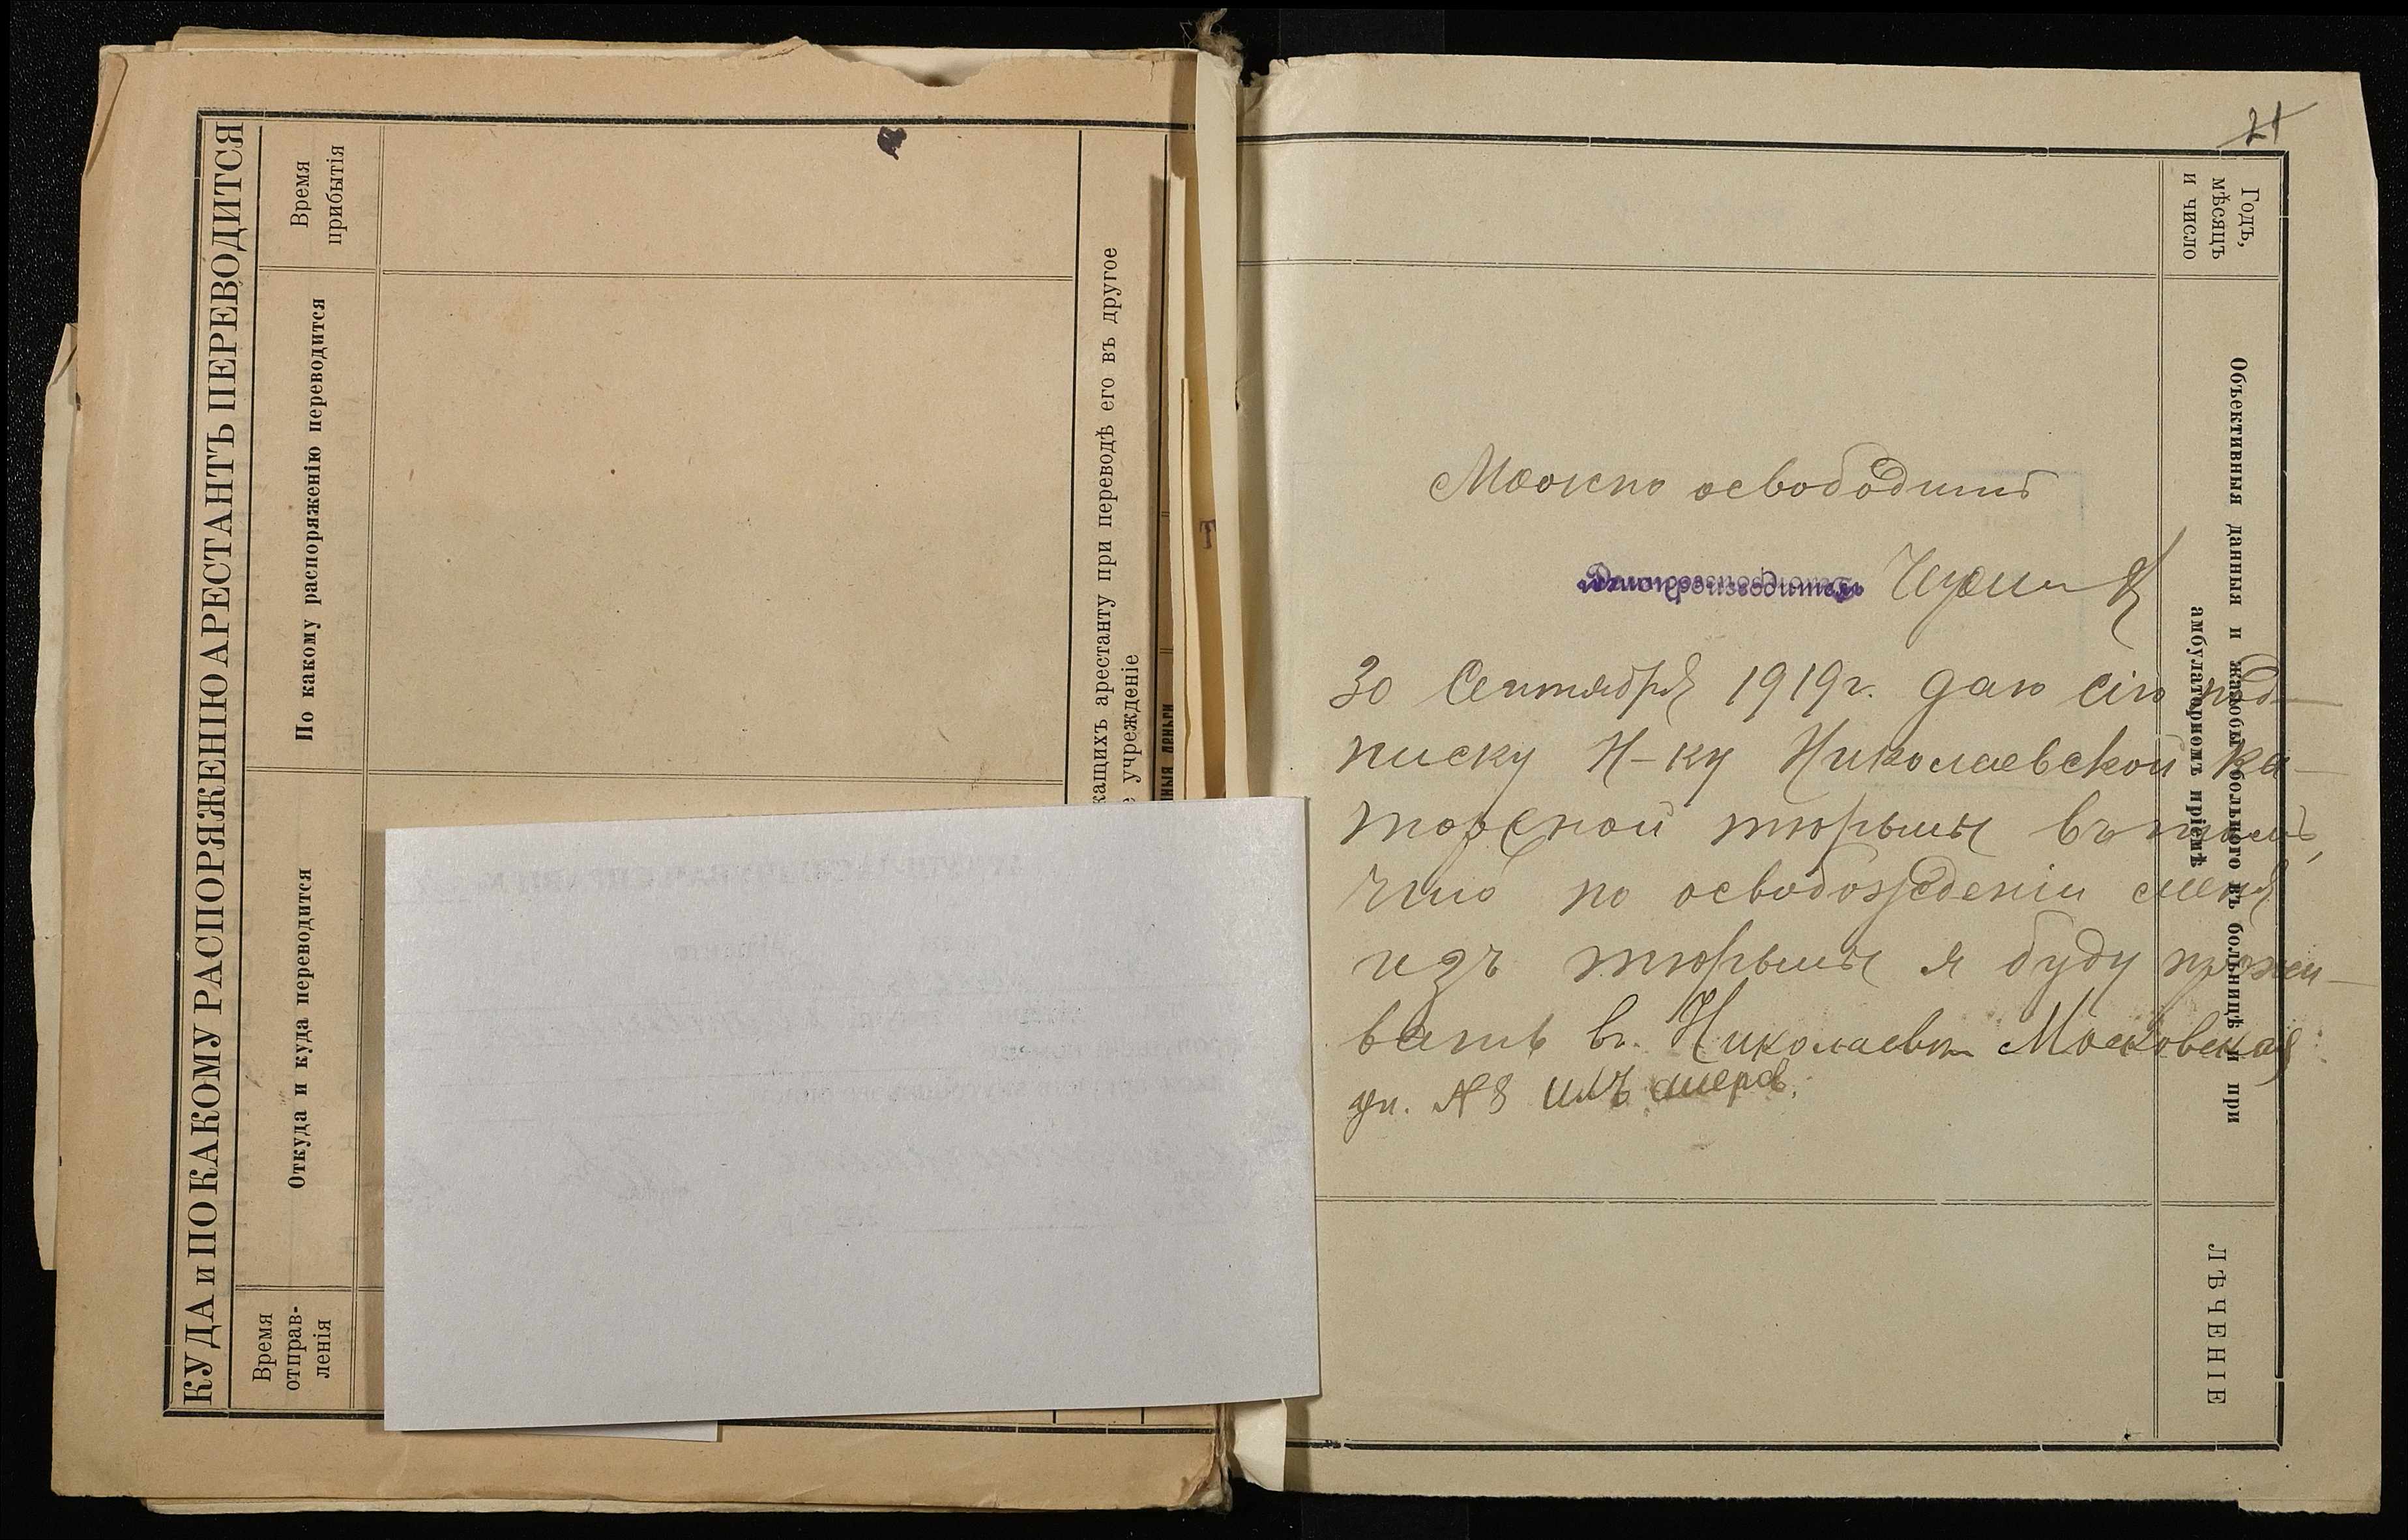 КУДА и ПО КАКОМУ РАСПОРЯЖЕНІЮ АРЕСТАНТЪ ПЕРЕВОДИТСЯ
Время
отправ-
ленія
Откуда и куда переводится
По какому распоряженію переводится
Время
прибытія
жащихъ арестанту при переводѣ его въ другое
учрежденіе
деньги
21
Годъ,
мѣсяцъ
и число
Объективныя данныя и жалобы больного въ больницѣ и при
амбулаторномъ пріемѣ
ЛѢЧЕНІЕ
Можно освободить
30 Сентября 1919г. даю сію под-
писку Н-ку Николаевской ка-
торжной тюрьмы въ томъ,
что по освобожденіи меня
изъ тюрьмы я буду прожи-
вать въ Николаевѣ Московская
ул. № 8